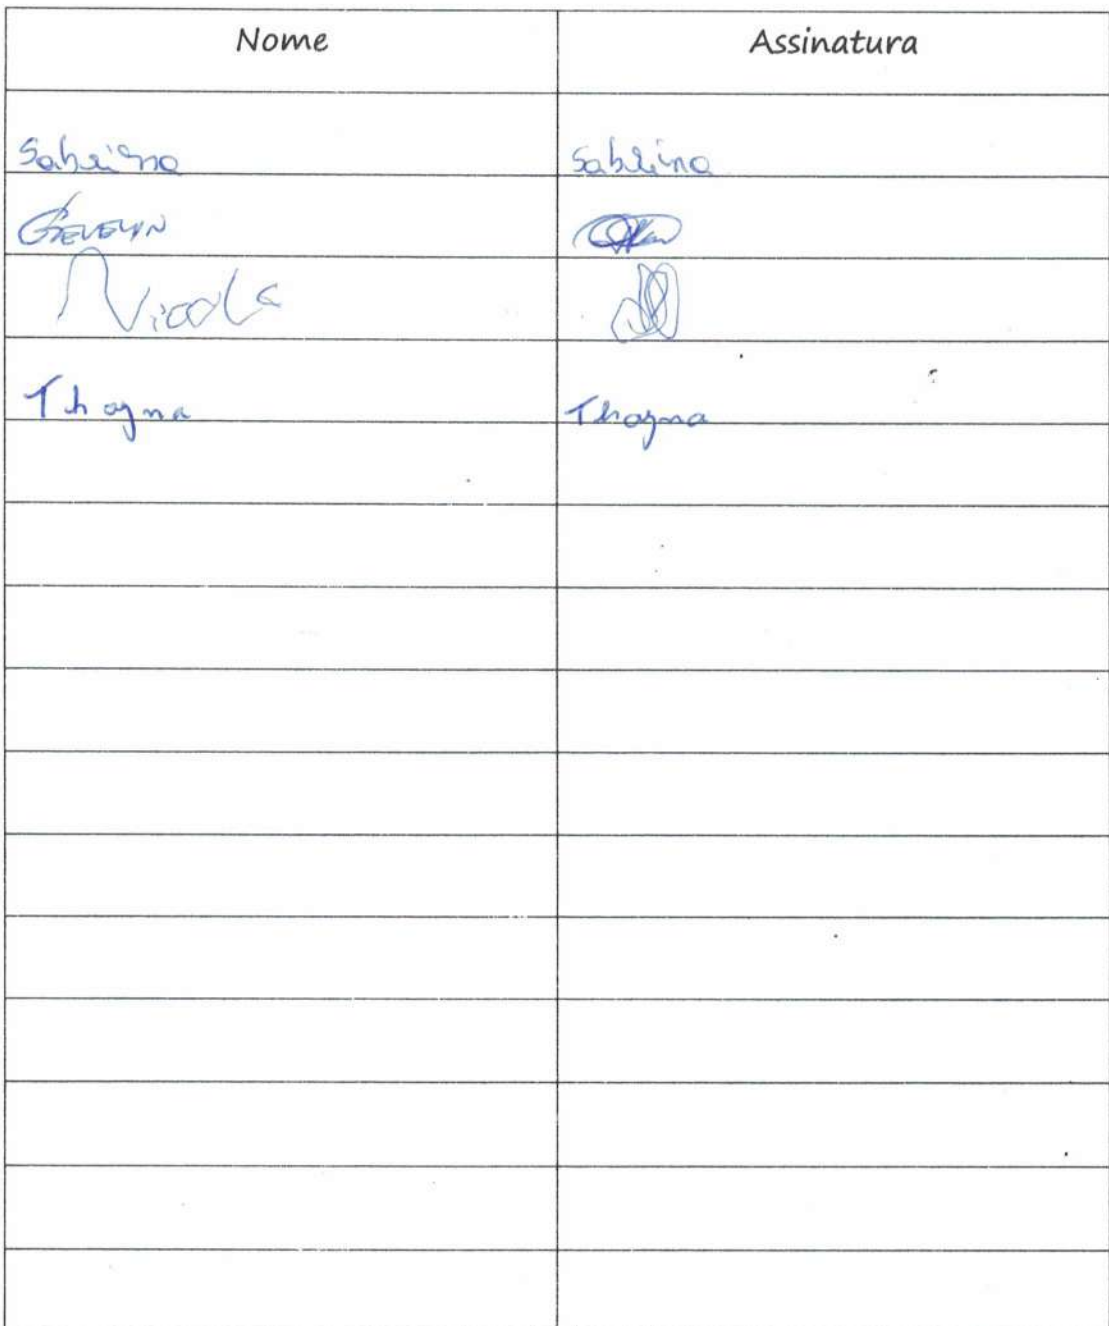 Nome Assinatura
Sabrina Sabrina
Nicole
Thayna Thayna